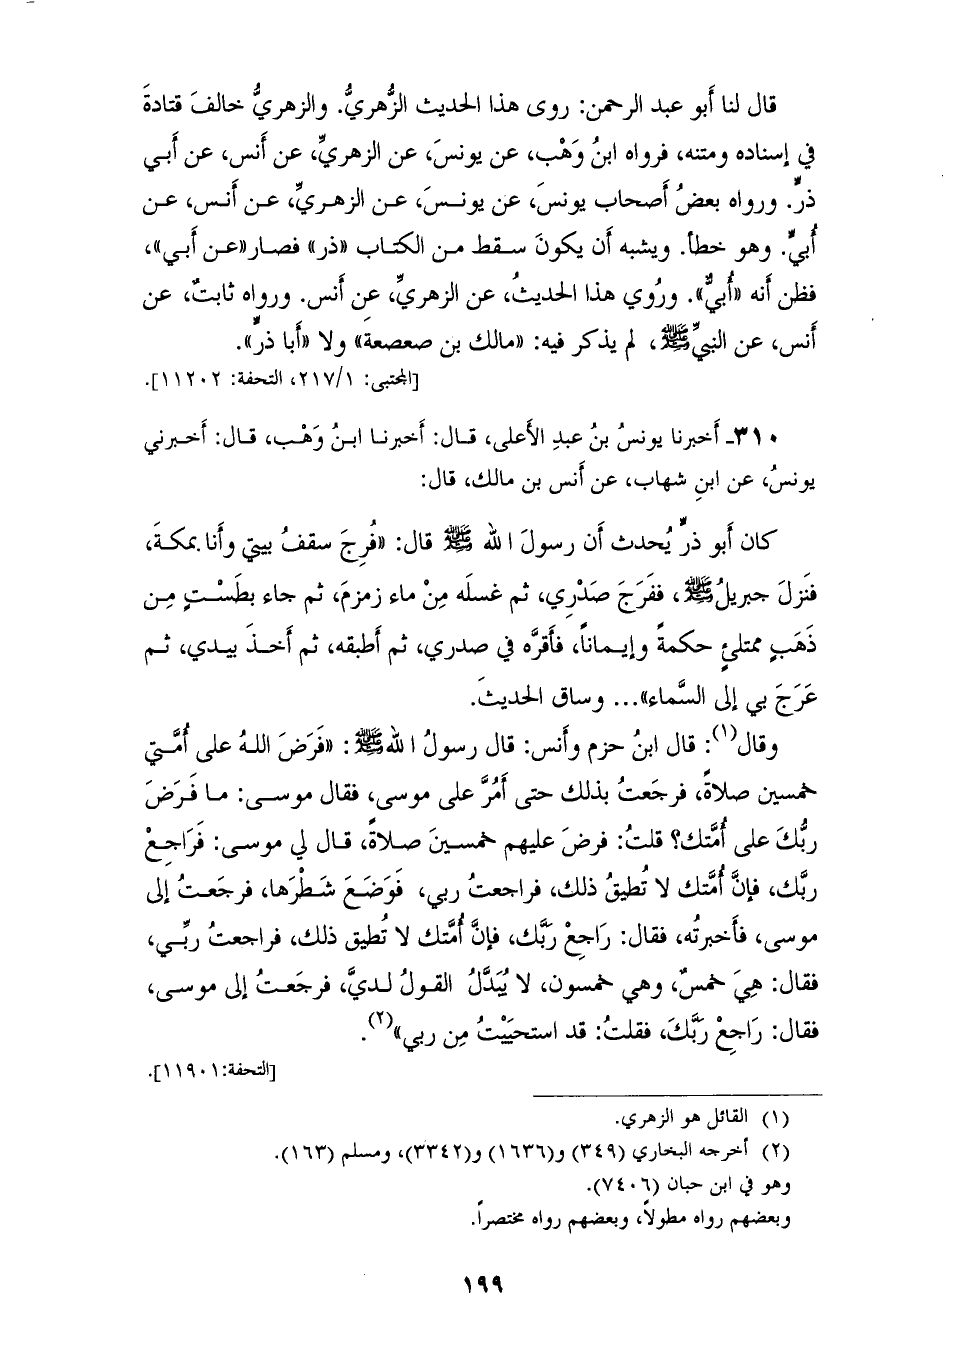 قال لنا أَبو عبد الرحمن: روى هذا الحديث الزُّهريُّ. والزهريُّ خالفَ قتادةَ
في إسناده ومتنه، فرواه ابنُ وَهْب، عن يونسَ، عن الزهريِّ، عن أَنس، عن أَبي
ذرٍّ. ورواه بعضُ أَصحاب يونسَ، عن يونسَ، عن الزهريِّ، عن أَنس، عن
أُبيٍّ. وهو خطأ. ويشبه أَن يكونَ سقط من الكتاب «ذر» فصار «عن أبي»،
فظن أَنه «أُبيٌّ». ورُوي هذا الحديثُ، عن الزهريِّ، عن أَنس. ورواه ثابتٌ، عن
أَنس، عن النبيِّ ﷺ، لم يذكر فيه: «مالك بن صعصعة» ولا «أَبا ذرٍّ».
[المجتبى: ٢١٧/١، التحفة: ١١٢٠٢].
٣١٠ـ أَخبرنا يونسُ بنُ عبدِ الأَعلى، قال: أَخبرنا ابنُ وَهْب، قال: أَخبرني
يونسُ، عن ابنِ شهاب، عن أَنس بن مالك، قال:
كان أَبو ذرٍّ يُحدث أَن رسولَ الله ﷺ قال: «فُرِجَ سقفُ بيتي وأَنا بمكةَ،
فنَزلَ جبريلُ ﷺ، ففَرَجَ صَدْرِي، ثم غسلَه مِنْ ماء زمزمَ، ثم جاء بطَسْتٍ مِن
ذَهَبٍ ممتلئٍ حكمةً وإيماناً، فأَقرَّه في صدري، ثم أَطبقه، ثم أَخذَ بيدي، ثم
عَرَجَ بي إلى السَّماء»... وساق الحديثَ.
وقال(١): قال ابنُ حزم وأَنس: قال رسولُ الله ﷺ: «فَرَضَ اللهُ على أُمَّتي
خمسين صلاةً، فرجَعتُ بذلك حتى أَمُرَّ على موسى، فقال موسى: ما فَرَضَ
ربُّكَ على أُمَّتك؟ قلتُ: فرضَ عليهم خمسينَ صلاةً، قال لي موسى: فَرَاجِعْ
ربَّك، فإنَّ أُمَّتك لا تُطيقُ ذلك، فراجعتُ ربي، فَوَضَعَ شَطْرَها، فرجَعتُ إلى
موسى، فأَخبرتُه، فقال: رَاجِعْ ربَّك، فإنَّ أُمَّتك لا تُطيق ذلك، فراجعتُ ربِّي،
فقال: هِيَ خمسٌ، وهي خمسون، لا يُبَدَّلُ القولُ لديَّ، فرجَعتُ إلى موسى،
فقال: رَاجِعْ رَبَّكَ، فقلتُ: قد استحيَيْتُ مِن ربي»(٢).
[التحفة: ١١٩٠١].
(١) القائل هو الزهري.
(٢) أخرجه البخاري (٣٤٩) و(١٦٣٦) و(٣٣٤٢)، ومسلم (١٦٣).
وهو في ابن حبان (٧٤٠٦).
وبعضهم رواه مطولاً، وبعضهم رواه مختصراً.
١٩٩